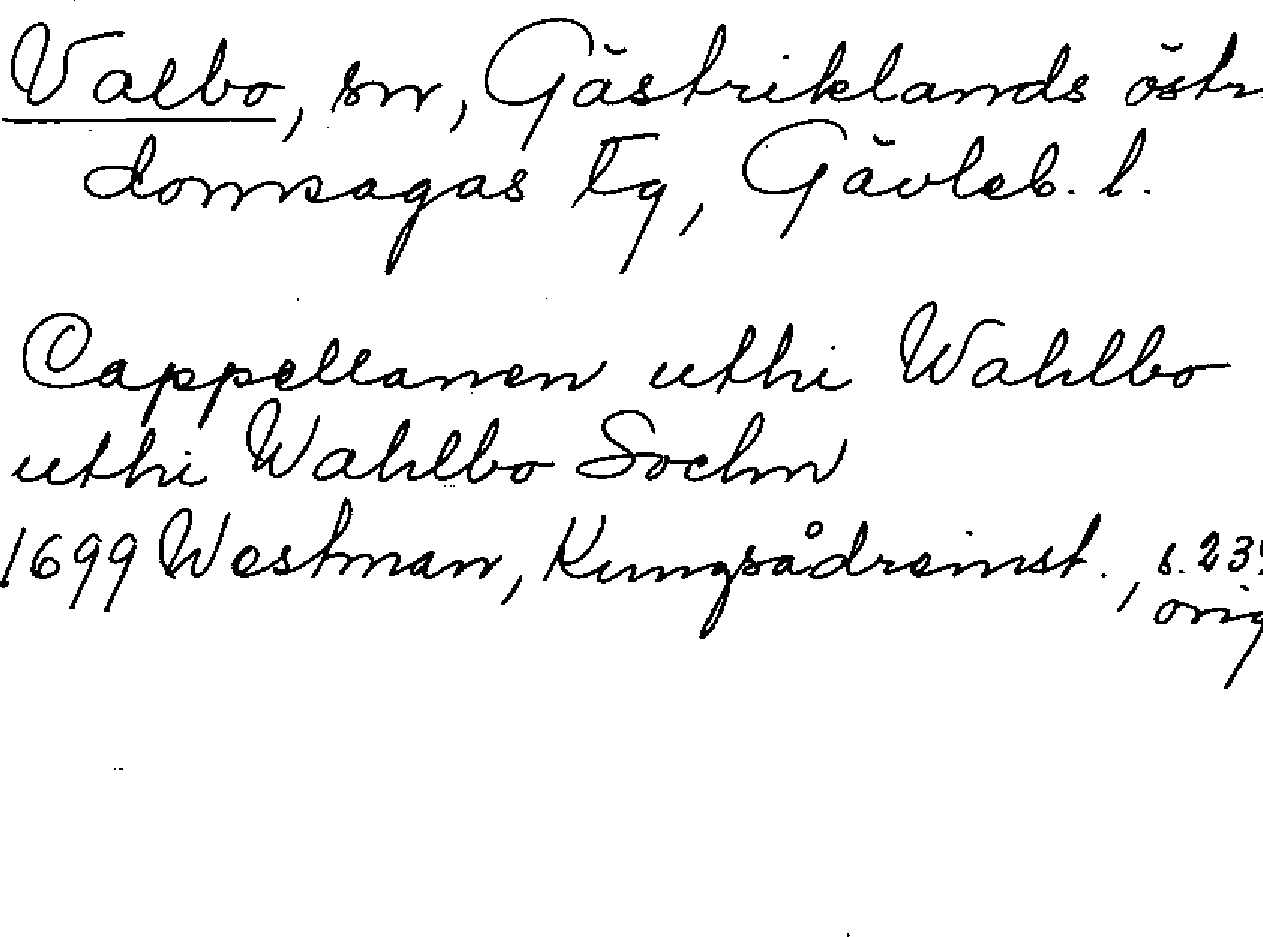 Valbo, sn, Gästriklands östr
domsagas tg, Gävleb. l.
Cappellanen uthi Wahlbo
uthi Wahlbo Sochn
1699 Westman, Kungsådreinst., s. 23
orig